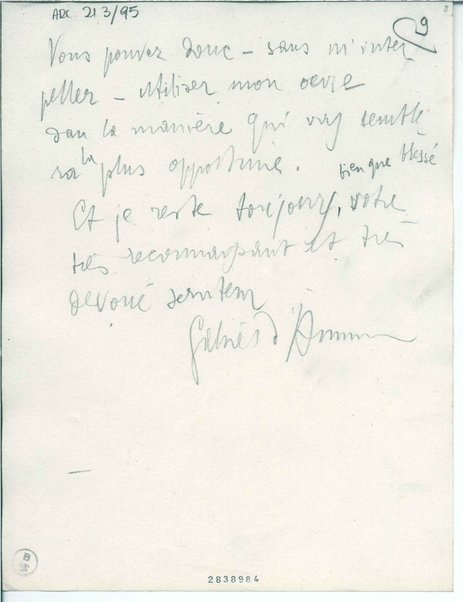 ARC. 21 3/95
9
8
Vous pouvez donc – sans m'inter
peller – utiliser mon oevre
dan la manière qui vous semble
ra la plus opportune.
bien que blessé
Et je reste toujours, votre
très reconnaissant et très
devoué serviteur
Gabriel d'Annun
B
2838984